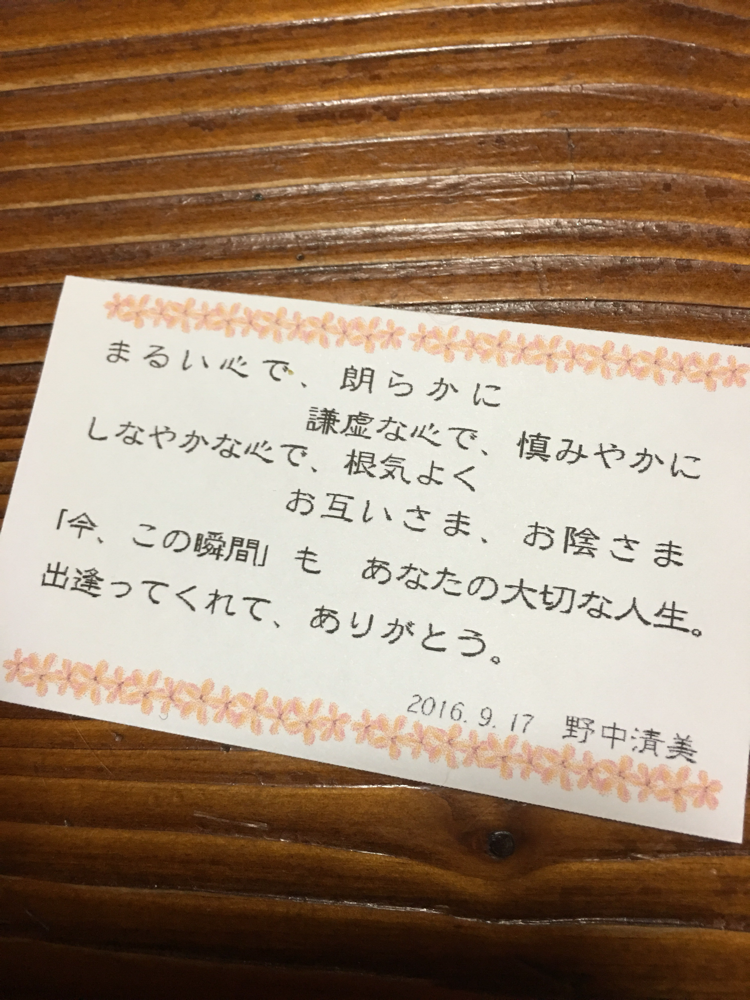 まるい心で、朗らかに
謙虚な心で、慎みやかに
しなやかな心で、根気よく
お互いさま、お陰さま
「今、この瞬間」も　あなたの大切な人生。
出逢ってくれて、ありがとう。
2016.9.17　野中清美